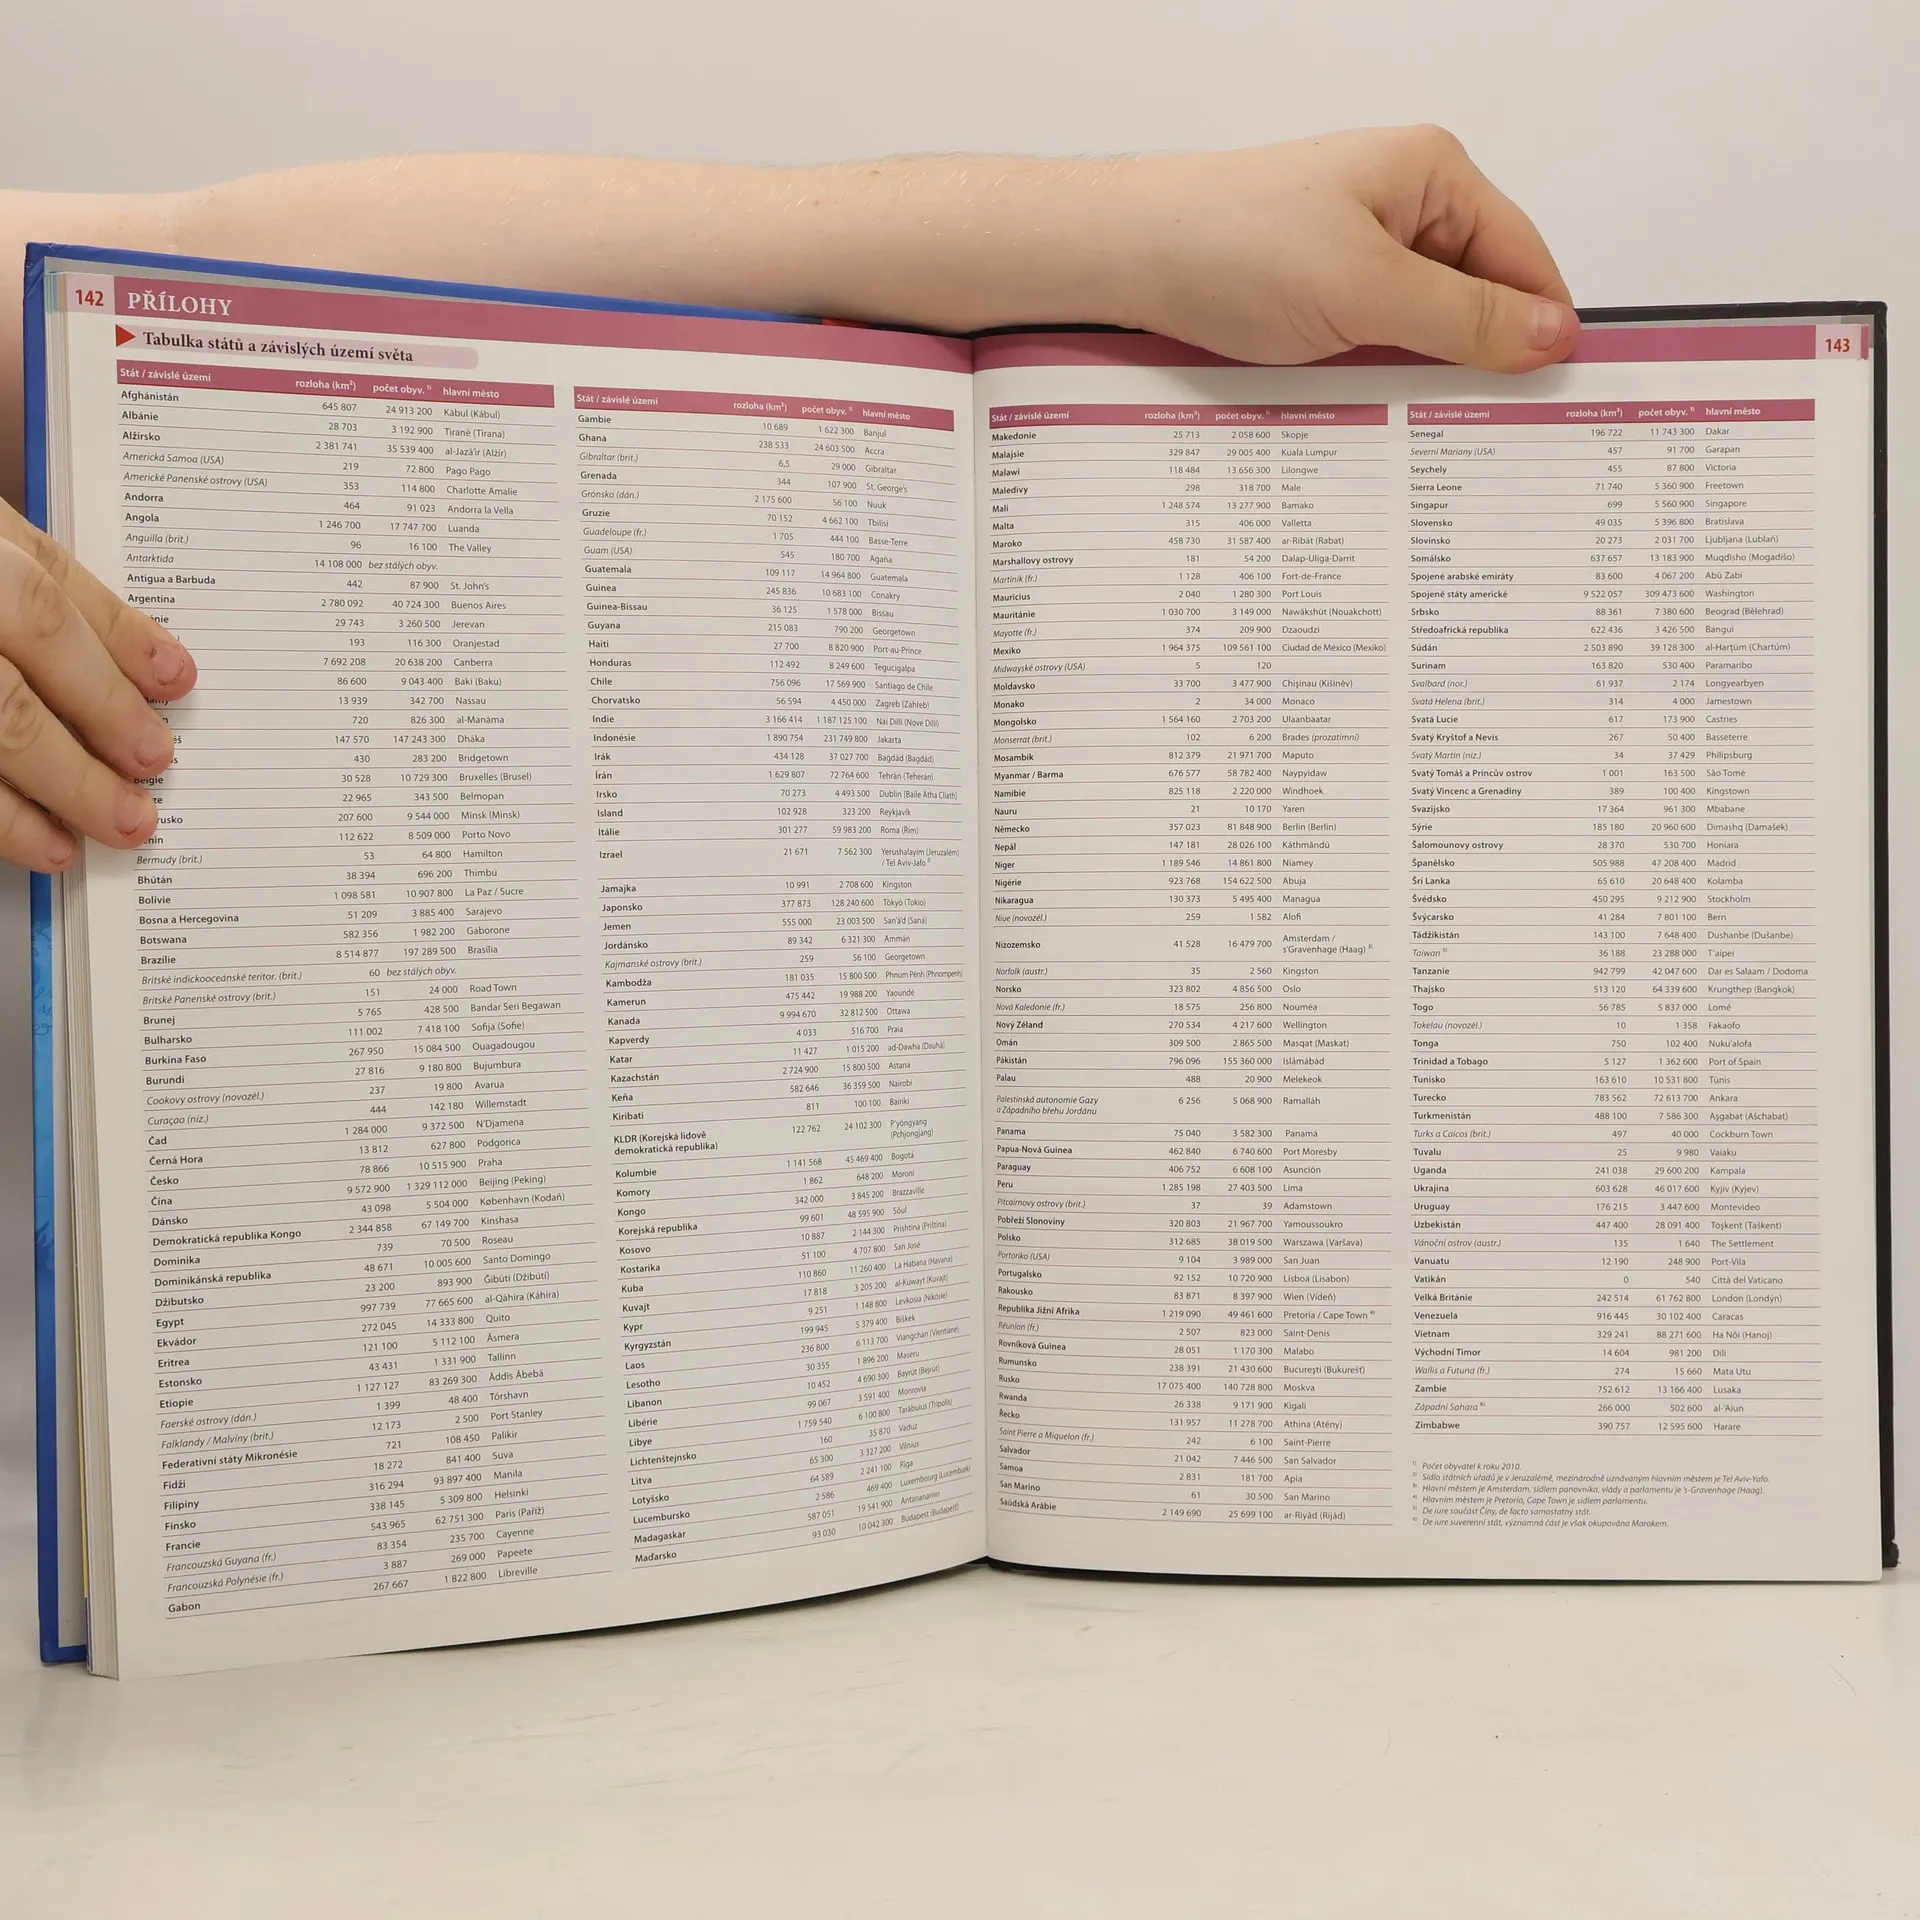 142 PŘÍLOHY
Tabulka států a závislých území světa
Stát / závislé území rozloha (km²) počet obyv. ¹⁾ hlavní město
Afghánistán 645 807 24 913 200 Kábul (Kábul)
Albánie 28 703 3 192 900 Tiranë (Tirana)
Alžírsko 2 381 741 35 539 400 al-Jazä'ir (Alžír)
Americká Samoa (USA) 219 72 800 Pago Pago
Americké Panenské ostrovy (USA) 353 114 800 Charlotte Amalie
Andorra 464 91 023 Andorra la Vella
Angola 1 246 700 17 747 700 Luanda
Anguilla (brit.) 96 16 100 The Valley
Antarktida 14 108 000 bez stálých obyv.
Antigua a Barbuda 442 87 900 St. John's
Argentina 2 780 092 40 724 300 Buenos Aires
29 743 3 260 500 Jerevan
193 116 300 Oranjestad
7 692 208 20 638 200 Canberra
86 600 9 043 400 Baki (Baku)
13 939 342 700 Nassau
720 826 300 al-Manáma
147 570 147 243 300 Dháka
430 283 200 Bridgetown
Belgie 30 528 10 729 300 Bruxelles (Brusel)
22 965 343 500 Belmopan
207 600 9 544 000 Minsk (Minsk)
112 622 8 509 000 Porto Novo
Bermudy (brit.) 53 64 800 Hamilton
Bhútán 38 394 696 200 Thimbú
Bolívie 1 098 581 10 907 800 La Paz / Sucre
Bosna a Hercegovina 51 209 3 885 400 Sarajevo
Botswana 582 356 1 982 200 Gaborone
Brazílie 8 514 877 197 289 500 Brasília
Britské indickooceánské teritor. (brit.) 60 bez stálých obyv.
Britské Panenské ostrovy (brit.) 151 24 000 Road Town
Brunej 5 765 428 500 Bandar Seri Begawan
Bulharsko 111 002 7 418 100 Sofija (Sofie)
Burkina Faso 267 950 15 084 500 Ouagadougou
Burundi 27 816 9 180 800 Bujumbura
Cookovy ostrovy (novozél.) 237 19 800 Avarua
Curaçao (niz.) 444 142 180 Willemstadt
Čad 1 284 000 9 372 500 N'Djamena
Černá Hora 13 812 627 800 Podgorica
Česko 78 866 10 515 900 Praha
Čína 9 572 900 1 329 112 000 Beijing (Peking)
Dánsko 43 098 5 504 000 København (Kodaň)
Demokratická republika Kongo 2 344 858 67 149 700 Kinshasa
Dominika 739 70 500 Roseau
Dominikánská republika 48 671 10 005 600 Santo Domingo
Džibutsko 23 200 893 900 Ğibúti (Džibuti)
Egypt 997 739 77 665 600 al-Qáhira (Káhira)
Ekvádor 272 045 14 333 800 Quito
Eritrea 121 100 5 112 100 Åsmera
Estonsko 43 431 1 331 900 Tallinn
Etiopie 1 127 127 83 269 300 Àddis Àbebà
Faerské ostrovy (dán.) 1 399 48 400 Tórshavn
Falklandy / Malvíny (brit.) 12 173 2 500 Port Stanley
Federativní státy Mikronésie 721 108 450 Palikir
Fidži 18 272 841 400 Suva
Filipíny 316 294 93 897 400 Manila
Finsko 338 145 5 309 800 Helsinki
Francie 543 965 62 751 300 Paris (Paříž)
Francouzská Guyana (fr.) 83 354 235 700 Cayenne
Francouzská Polynésie (fr.) 3 887 269 000 Papeete
Gabon 267 667 1 822 800 Libreville
Stát / závislé území rozloha (km²) počet obyv. ¹⁾ hlavní město
Gambie 10 689 1 622 300 Banjul
Ghana 238 533 24 603 500 Accra
Gibraltar (brit.) 6,5 29 000 Gibraltar
Grenada 344 107 900 St. George's
Grónsko (dán.) 2 175 600 56 100 Nuuk
Gruzie 70 152 4 662 100 Tbilisi
Guadeloupe (fr.) 1 705 444 100 Basse-Terre
Guam (USA) 545 180 700 Agaña
Guatemala 109 117 14 964 800 Guatemala
Guinea 245 836 10 683 100 Conakry
Guinea-Bissau 36 125 1 578 000 Bissau
Guyana 215 083 790 200 Georgetown
Haiti 27 700 8 820 900 Port-au-Prince
Honduras 112 492 8 249 600 Tegucigalpa
Chile 756 096 17 569 900 Santiago de Chile
Chorvatsko 56 594 4 450 000 Zagreb (Záhřeb)
Indie 3 166 414 1 187 125 100 Nai Dillí (Nové Dillí)
Indonésie 1 890 754 231 749 800 Jakarta
Irák 434 128 37 027 700 Bagdád (Bagdád)
Írán 1 629 807 72 764 600 Tehrán (Teherán)
Irsko 70 273 4 493 500 Dublin (Baile Átha Cliath)
Island 102 928 323 200 Reykjavík
Itálie 301 277 59 983 200 Roma (Řím)
Izrael 21 671 7 562 300 Yerushalayim (Jeruzalém)
/ Tel Aviv-Jafo ²⁾
Jamajka 10 991 2 708 600 Kingston
Japonsko 377 873 128 240 600 Tókyó (Tokio)
Jemen 555 000 23 003 500 San'á'd (Saná)
Jordánsko 89 342 6 321 300 Ammán
Kajmanské ostrovy (brit.) 259 56 100 Georgetown
Kambodža 181 035 15 800 500 Phnum Pénh (Phnompenh)
Kamerun 475 442 19 988 200 Yaoundé
Kanada 9 994 670 32 812 500 Ottawa
Kapverdy 4 033 516 700 Praia
Katar 11 427 1 015 200 ad-Dawha (Dauhá)
Kazachstán 2 724 900 15 800 500 Astana
Keňa 582 646 36 359 500 Nairobi
Kiribati 811 100 100 Bairiki
KLDR (Korejská lidově 122 762 24 102 300 P'yŏngyang
demokratická republika) (Pchjongjang)
Kolumbie 1 141 568 45 469 400 Bogotá
Komory 1 862 648 200 Moroni
Kongo 342 000 3 845 200 Brazzaville
Korejská republika 99 601 48 595 900 Sŏul
Kosovo 10 887 2 144 300 Prishtina (Priština)
Kostarika 51 100 4 707 800 San José
Kuba 110 860 11 260 400 La Habana (Havana)
Kuvajt 17 818 3 205 200 al-Kuwayt (Kuvajt)
Kypr 9 251 1 148 800 Levkosia (Nikósie)
Kyrgyzstán 199 945 5 379 400 Biškek
Laos 236 800 6 113 700 Viangchan (Vientiane)
Lesotho 30 355 1 896 200 Maseru
Libanon 10 452 4 690 300 Bayrút (Bejrút)
Libérie 99 067 3 591 400 Monrovia
Libye 1 759 540 6 100 800 Tarábulus (Tripolis)
Lichtenštejnsko 160 35 870 Vaduz
Litva 65 300 3 327 200 Vilnius
Lotyšsko 64 589 2 241 100 Riga
Lucembursko 2 586 469 400 Luxembourg (Lucemburk)
Madagaskar 587 051 19 541 900 Antananarivo
Maďarsko 93 030 10 042 300 Budapest (Budapešť)
143
Stát / závislé území rozloha (km²) počet obyv. ¹⁾ hlavní město
Makedonie 25 713 2 058 600 Skopje
Malajsie 329 847 29 005 400 Kuala Lumpur
Malawi 118 484 13 656 300 Lilongwe
Maledivy 298 318 700 Male
Mali 1 248 574 13 277 900 Bamako
Malta 315 406 000 Valletta
Maroko 458 730 31 587 400 ar-Ribát (Rabat)
Marshallovy ostrovy 181 54 200 Dalap-Uliga-Darrit
Martinik (fr.) 1 128 406 100 Fort-de-France
Mauricius 2 040 1 280 300 Port Louis
Mauritánie 1 030 700 3 149 000 Nawákshút (Nouakchott)
Mayotte (fr.) 374 209 900 Dzaoudzi
Mexiko 1 964 375 109 561 100 Ciudad de México (Mexiko)
Midwayské ostrovy (USA) 5 120
Moldavsko 33 700 3 477 900 Chişinau (Kišiněv)
Monako 2 34 000 Monaco
Mongolsko 1 564 160 2 703 200 Ulaanbaatar
Monserrat (brit.) 102 6 200 Brades (prozatímní)
Mosambik 812 379 21 971 700 Maputo
Myanmar / Barma 676 577 58 782 400 Naypyidaw
Namibie 825 118 2 220 000 Windhoek
Nauru 21 10 170 Yaren
Německo 357 023 81 848 900 Berlin (Berlín)
Nepál 147 181 28 026 100 Káthmándú
Niger 1 189 546 14 861 800 Niamey
Nigérie 923 768 154 622 500 Abuja
Nikaragua 130 373 5 495 400 Managua
Niue (novozél.) 259 1 582 Alofi
Nizozemsko 41 528 16 479 700 Amsterdam /
s'Gravenhage (Haag) ³⁾
Norfolk (austr.) 35 2 560 Kingston
Norsko 323 802 4 856 500 Oslo
Nová Kaledonie (fr.) 18 575 256 800 Nouméa
Nový Zéland 270 534 4 217 600 Wellington
Omán 309 500 2 865 500 Masqat (Maskat)
Pákistán 796 096 155 360 000 Islámábád
Palau 488 20 900 Melekeok
Palestinská autonomie Gazy 6 256 5 068 900 Ramalláh
a Západního břehu Jordánu
Panama 75 040 3 582 300 Panamá
Papua-Nová Guinea 462 840 6 740 600 Port Moresby
Paraguay 406 752 6 608 100 Asunción
Peru 1 285 198 27 403 500 Lima
Pitcairnovy ostrovy (brit.) 37 39 Adamstown
Pobřeží Slonoviny 320 803 21 967 700 Yamoussoukro
Polsko 312 685 38 019 500 Warszawa (Varšava)
Portoriko (USA) 9 104 3 989 000 San Juan
Portugalsko 92 152 10 720 900 Lisboa (Lisabon)
Rakousko 83 871 8 397 900 Wien (Vídeň)
Republika Jižní Afrika 1 219 090 49 461 600 Pretoria / Cape Town ⁴⁾
Réunion (fr.) 2 507 823 000 Saint-Denis
Rovníková Guinea 28 051 1 170 300 Malabo
Rumunsko 238 391 21 430 600 Bucureşti (Bukurešť)
Rusko 17 075 400 140 728 800 Moskva
Rwanda 26 338 9 171 900 Kigali
Řecko 131 957 11 278 700 Athina (Atény)
Saint Pierre a Miquelon (fr.) 242 6 100 Saint-Pierre
Salvador 21 042 7 446 500 San Salvador
Samoa 2 831 181 700 Apia
San Marino 61 30 500 San Marino
Saúdská Arábie 2 149 690 25 699 100 ar-Riyád (Rijád)
Stát / závislé území rozloha (km²) počet obyv. ¹⁾ hlavní město
Senegal 196 722 11 743 300 Dakar
Severní Mariany (USA) 457 91 700 Garapan
Seychely 455 87 800 Victoria
Sierra Leone 71 740 5 360 900 Freetown
Singapur 699 5 560 900 Singapore
Slovensko 49 035 5 396 800 Bratislava
Slovinsko 20 273 2 031 700 Ljubljana (Lublaň)
Somálsko 637 657 13 183 900 Muqdisho (Mogadišo)
Spojené arabské emiráty 83 600 4 067 200 Abú Zabí
Spojené státy americké 9 522 057 309 473 600 Washington
Srbsko 88 361 7 380 600 Beograd (Bělehrad)
Středoafrická republika 622 436 3 426 500 Bangui
Súdán 2 503 890 39 128 300 al-Harţúm (Chartúm)
Surinam 163 820 530 400 Paramaribo
Svalbard (nor.) 61 937 2 174 Longyearbyen
Svatá Helena (brit.) 314 4 000 Jamestown
Svatá Lucie 617 173 900 Castries
Svatý Kryštof a Nevis 267 50 400 Basseterre
Svatý Martin (niz.) 34 37 429 Philipsburg
Svatý Tomáš a Princův ostrov 1 001 163 500 São Tomé
Svatý Vincenc a Grenadiny 389 100 400 Kingstown
Svazijsko 17 364 961 300 Mbabane
Sýrie 185 180 20 960 600 Dimashq (Damašek)
Šalomounovy ostrovy 28 370 530 700 Honiara
Španělsko 505 988 47 208 400 Madrid
Šrí Lanka 65 610 20 648 400 Kolamba
Švédsko 450 295 9 212 900 Stockholm
Švýcarsko 41 284 7 801 100 Bern
Tádžikistán 143 100 7 648 400 Dushanbe (Dušanbe)
Taiwan ⁵⁾ 36 188 23 288 000 T'aipei
Tanzanie 942 799 42 047 600 Dar es Salaam / Dodoma
Thajsko 513 120 64 339 600 Krungthep (Bangkok)
Togo 56 785 5 837 000 Lomé
Tokelau (novozél.) 10 1 358 Fakaofo
Tonga 750 102 400 Nuku'alofa
Trinidad a Tobago 5 127 1 362 600 Port of Spain
Tunisko 163 610 10 531 800 Túnis
Turecko 783 562 72 613 700 Ankara
Turkmenistán 488 100 7 586 300 Aşgabat (Ašchabat)
Turks a Caicos (brit.) 497 40 000 Cockburn Town
Tuvalu 25 9 980 Vaiaku
Uganda 241 038 29 600 200 Kampala
Ukrajina 603 628 46 017 600 Kyjiv (Kyjev)
Uruguay 176 215 3 447 600 Montevideo
Uzbekistán 447 400 28 091 400 Toşkent (Taškent)
Vánoční ostrov (austr.) 135 1 640 The Settlement
Vanuatu 12 190 248 900 Port-Vila
Vatikán 0 540 Città del Vaticano
Velká Británie 242 514 61 762 800 London (Londýn)
Venezuela 916 445 30 102 400 Caracas
Vietnam 329 241 88 271 600 Ha Nôi (Hanoj)
Východní Timor 14 604 981 200 Dili
Wallis a Futuna (fr.) 274 15 660 Mata Utu
Zambie 752 612 13 166 400 Lusaka
Západní Sahara ⁶⁾ 266 000 502 600 al-'Aiun
Zimbabwe 390 757 12 595 600 Harare
¹⁾ Počet obyvatel k roku 2010.
²⁾ Sídlo státních úřadů je v Jeruzalémě, mezinárodně uznávaným hlavním městem je Tel Aviv-Yafo.
³⁾ Hlavní městem je Amsterdam, sídlem panovníka, vlády a parlamentu je 's-Gravenhage (Haag).
⁴⁾ Hlavním městem je Pretoria, Cape Town je sídlem parlamentu.
⁵⁾ De iure součást Číny, de facto samostatný stát.
⁶⁾ De iure suverenní stát, významná část je však okupována Marokem.